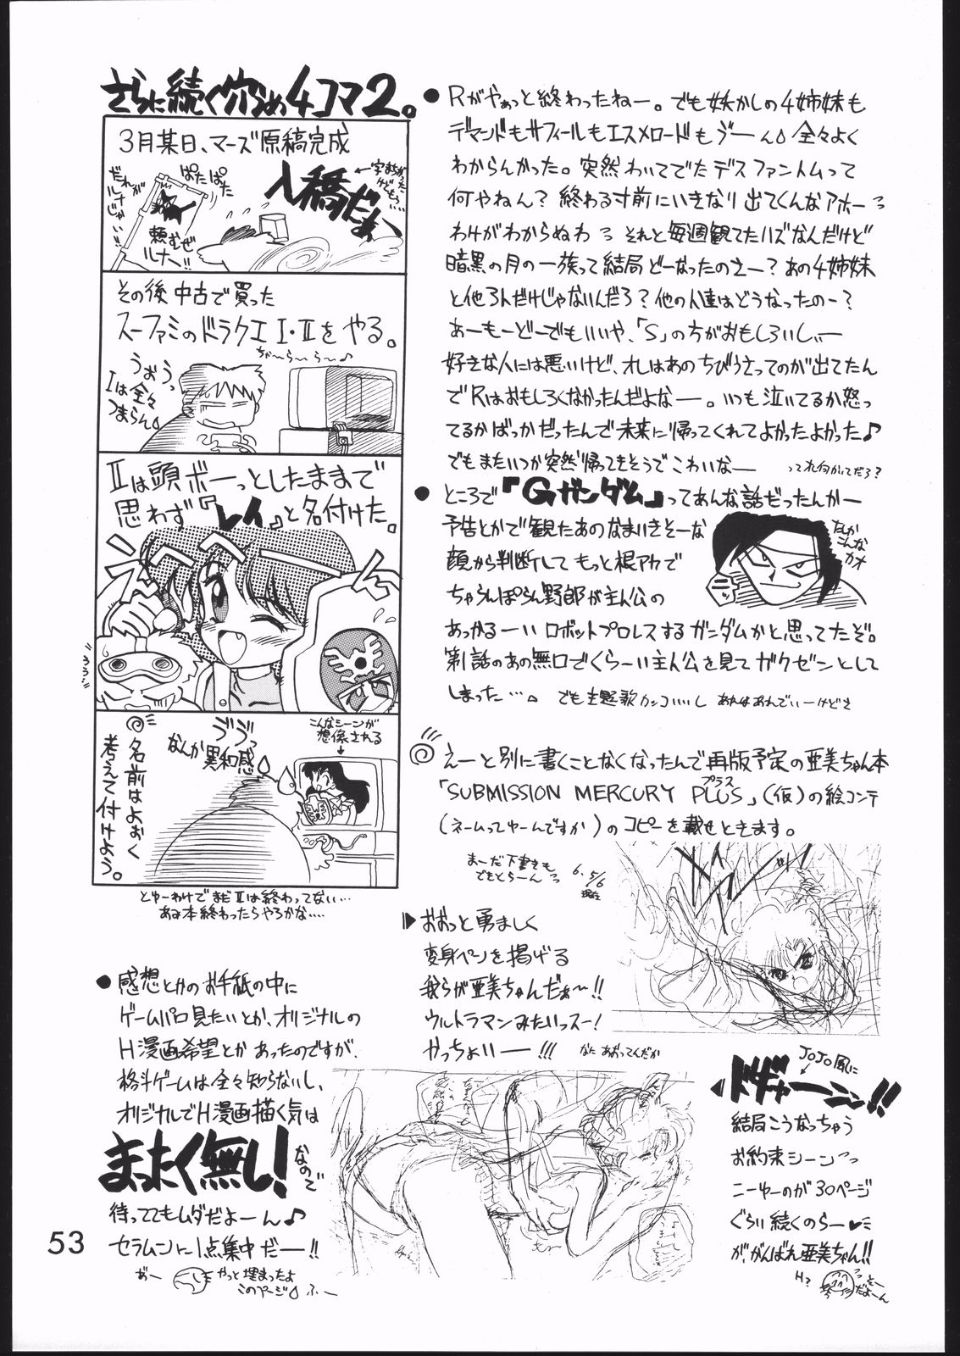 さらに続く穴うめ4コマ2。
3月某日、マーズ原稿完成
入稿だぁ〜
ぱたぱた
頼むぜ
ルナー!!
その後中古で買った
スーファミのドラクエⅠ・Ⅱをやる。
ちゃ〜ら〜ら〜♪
うぉぅっ
Ⅰは全々
つまらん
Ⅱは頭ボーっとしたままで
思わず『レイ』と名付けた。
こんなシーンが
想像される
なんか異和感
名前はよおく
考えて付けよう。
とゆーわけでまだⅡは終わってない…
あみ本終わったらやろかな‥‥
●Rがやぁっと終わったねー。でも妖かしの4姉妹も
デマンドもサフィールもエスメロードもうーん 全々よく
わからんかった。突然わいてでたデスファントムって
何やねん?終わる寸前にいきなり出てくんなアホーっ
わけがわからぬわっ それと毎週観てたハズなんだけど
暗黒の月の一族って結局どーなったのさー?あの4姉妹
と他3人だけじゃないんだろ?他の人達はどうなったのー?
あーもーどーでもいいや、「S」の方がおもしろいしぃー
好きな人には悪いけど、オレはあのちびうさってのが出てたん
でRはおもしろくなかったんだよなー。いつも泣いてるか怒っ
てるかばっかだったんで未来に帰ってくれてよかったよかった♪
でもまたいつか突然帰ってきそうでこわいなー
●ところで『Gガンダム』ってあんな話だったんかー
予告とかで観たあのなまいきそーな
顔から判断してもっと根アカで
ちゃらんぽらん野郎が主人公の
あっかるーいロボットプロレスするガンダムかと思ってたぞ。
第1話のあの無口でくらーい主人公を見てガクゼンとして
しまった…。でも主題歌カッコいいし あれはあれでいーけどさ
なんか
こんな
カオ
えーと別に書くことなくなったんで再版予定の亜美ちゃん本
「SUBMISSION MERCURY PLUS」(仮)の絵コンテ
プラス
(ネームってゆーんですか)のコピーを載せときます。
まーだ下書きも
6.5/6
現在
▶おおっと勇ましく
変身ペンを掲げる
我らが亜美ちゃんだぁ〜!!
ウルトラマンみたいっスー!
かっちょいいー!!!
なにあおってんだか
JOJO風に
ドギャーン!!
結局こうなっちゃう
お約束シーンっっ
こーゆーのが30ページ
ぐらい続くのらー♥
が、がんばれ亜美ちゃん!!
●感想とかのお手紙の中に
ゲームパロ見たいとか、オリジナルの
H漫画希望とかあったのですが、
格斗ゲームは全々知らないし、
オリジナルでH漫画描く気は
まったく無し!なので
待っててもムダだよーん♪
セラムンに1点集中だー!!
やっと埋まったよ
このページ ふー
53